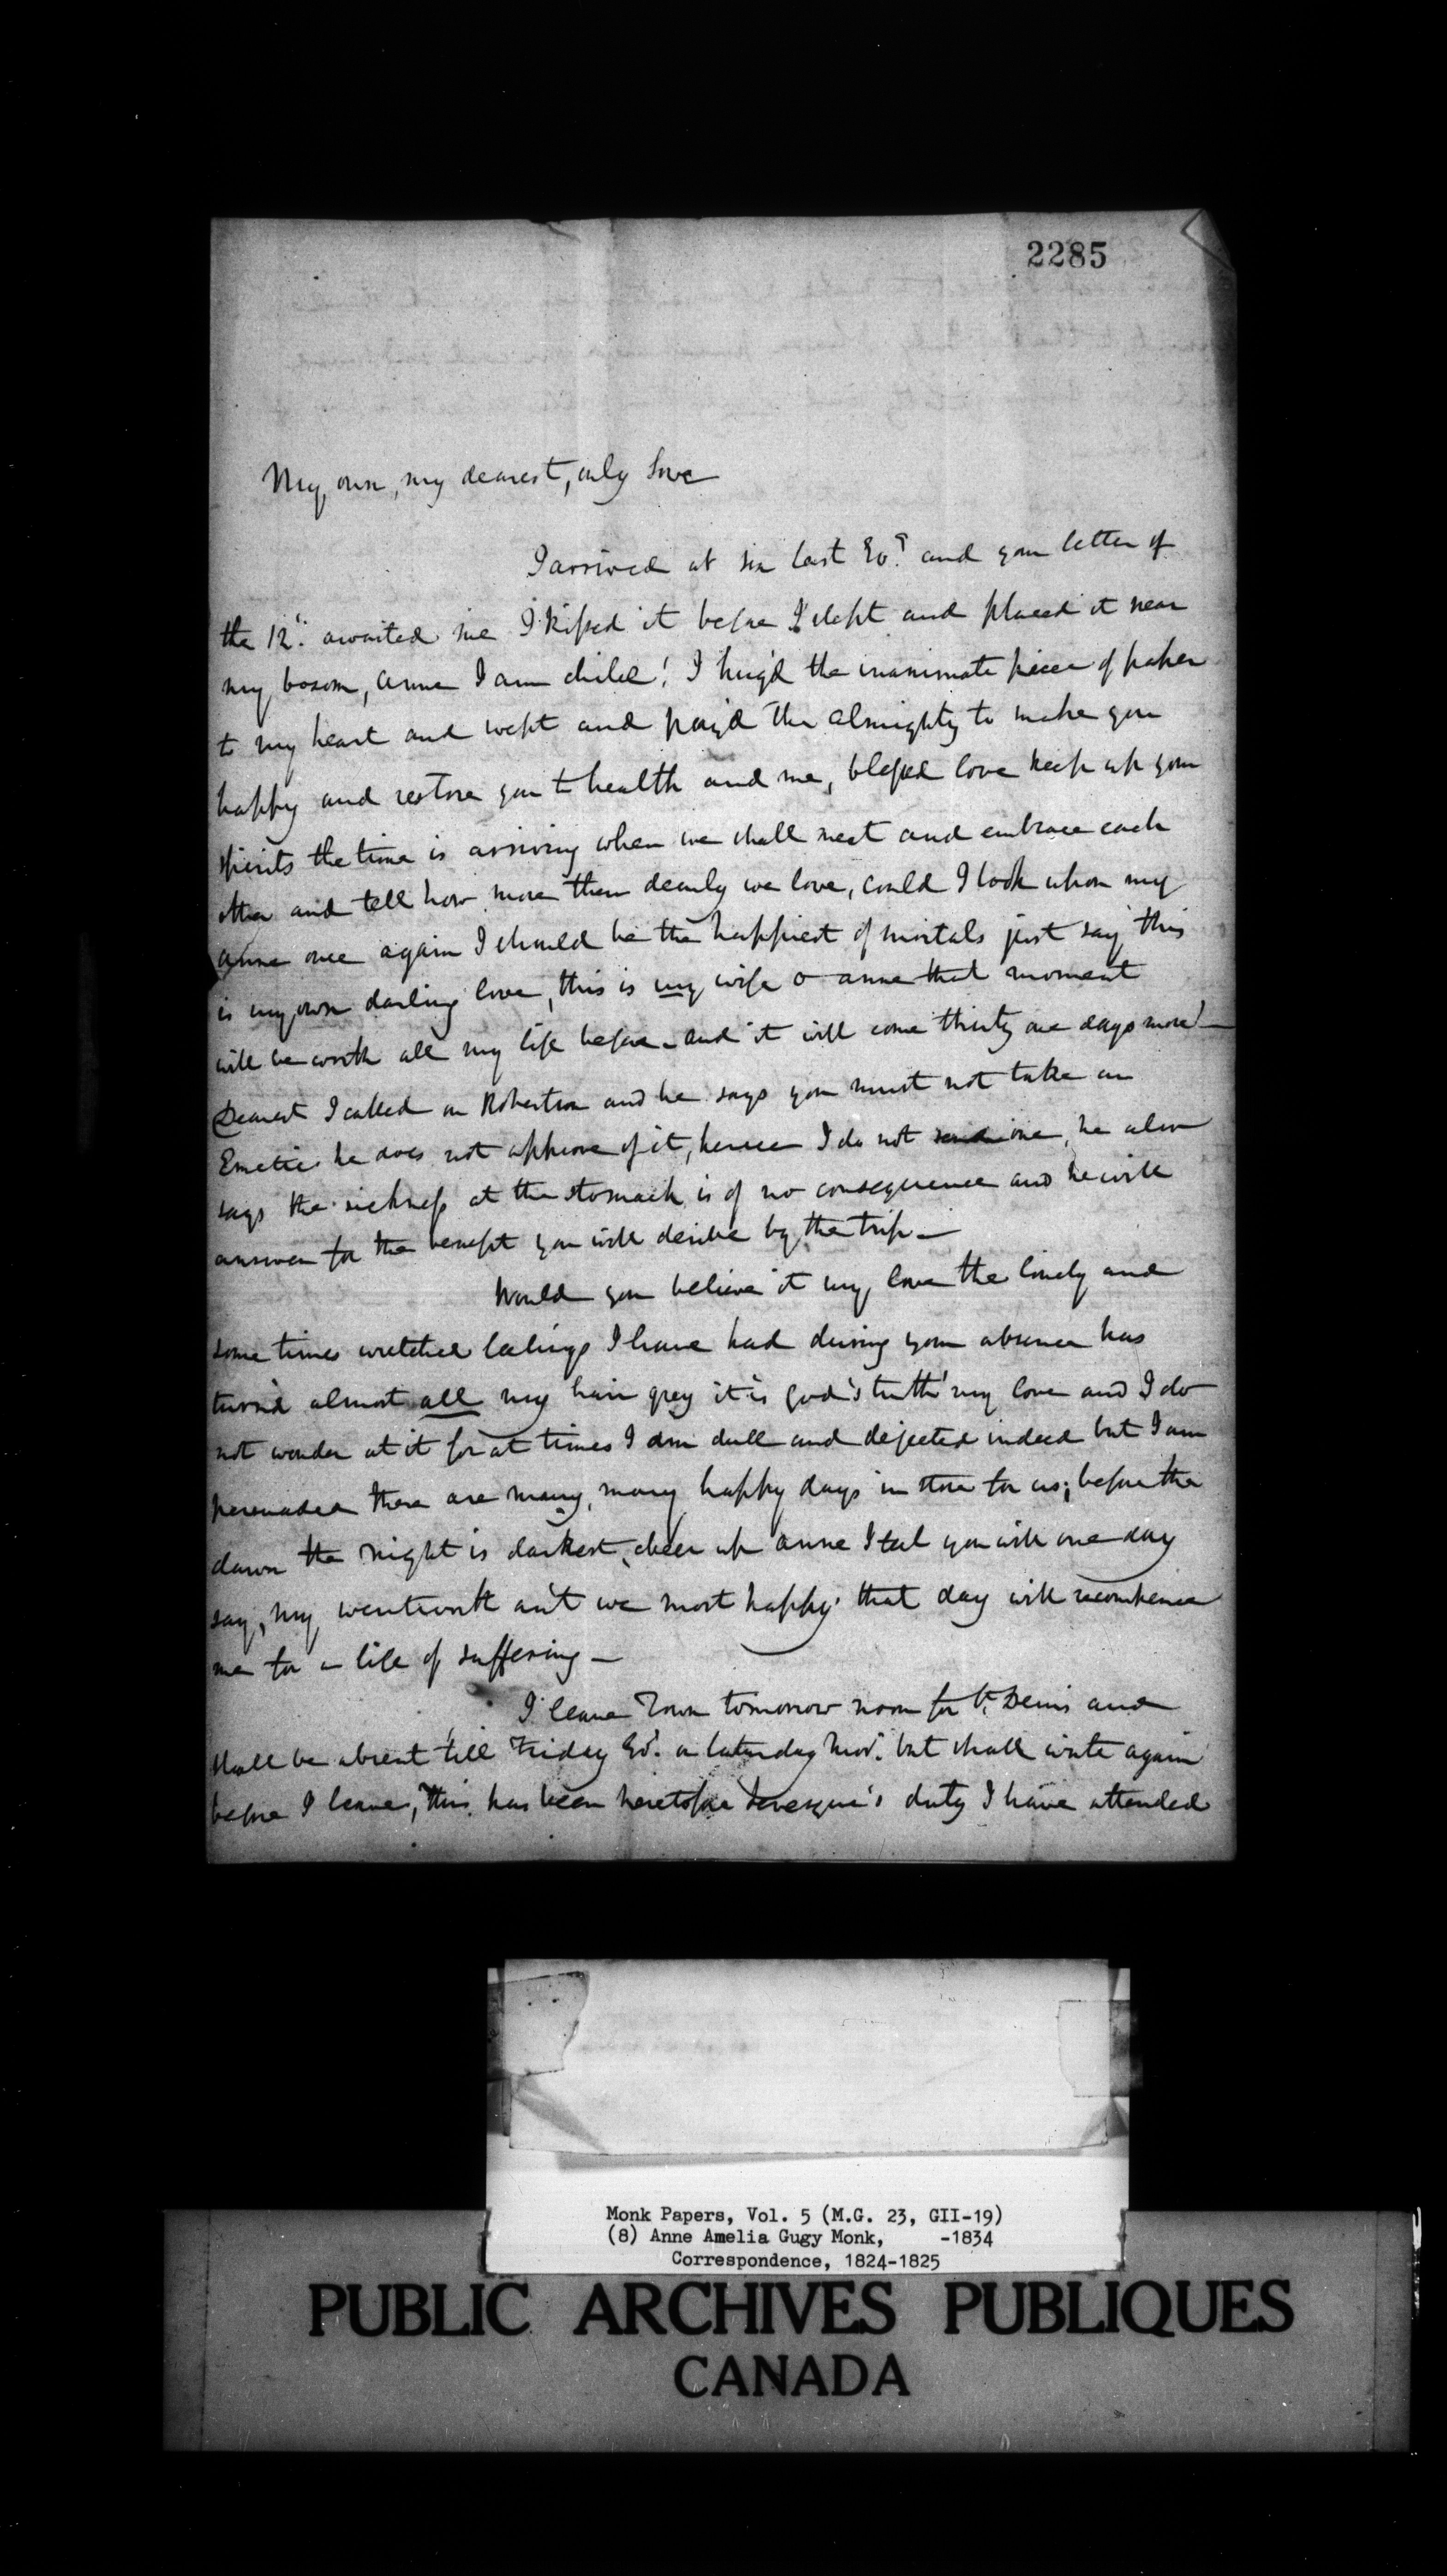 2285
My own, my dearest, only Love
I arrived at six last Evg and your letter of
the 12th awaited me I kissed it before I slept and placed it near
my bosom, anne I am child! I hug'd the inanimate piece of paper
to my heart and wept and pray'd the almighty to make you
happy and restore you to health and me, blessed love keep up your
spirits the time is arriving when we shall meet and embrace each
other and tell how more than dearly we love, could I look upon my
anne once again I should be the happiest of mortals just say this
is my own darling love, this is my wife o anne that moment
will be worth all my life before - and it will come thirty one days more! -
Dearest I called on Robertson and he says you must not take an
Emetic he does not approve of it, hence I do not send one, he also
says the sickness at the stomach is of no consequence and he will
answer for the benefit you will derive by the trip -
Would you believe it my love the lonely and
some times wretched feelings I have had during your absence has
turn'd almost all my hair grey it is god's truth my love and I do
not wonder at it for at times I am dull and dejected indeed but I am
persuaded there are many, many happy days in store for us; before the
dawn the night is darkest, cheer up anne I feel you will one day
say, my wentworth an't we most happy that day will recompence
me for a life of suffering -
I leave Town tomorrow noon for St Denis and
shall be absent till Friday Evg or Saturday Morg but shall write again
before I leave, this has been heretofore Levesque's duty I have attended
Monk Papers, Vol. 5 (M.G. 23, GII-19)
(8) Anne Amelia Gugy Monk, -1834
Correspondence, 1824-1825
PUBLIC ARCHIVES PUBLIQUES
CANADA